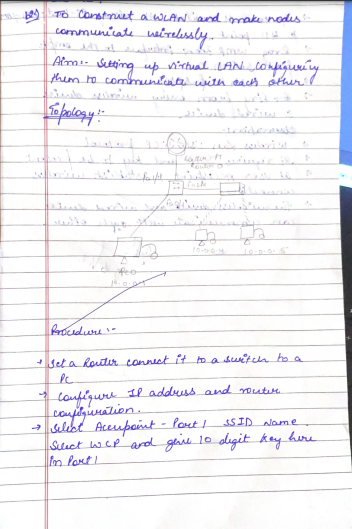 To Construct a WLAN and make nodes
communicate wirelessly.
Aim:- Setting up virtual LAN configuring
them to communicate with each other
Topology:-
Router-PT
Router 0
PC0
10.0.0.1
Procedure:-
→ Set a Router connect it to a switch to a
PC
→ Configure IP address and router
configuration.
→ Select Accesspoint - Port 1 SSID Name.
Select WCP and give 10 digit key here
in Port 1